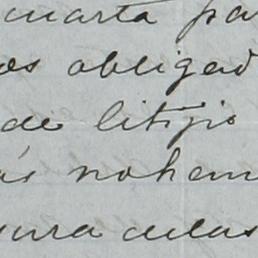 cuarta pa
os obligad
de litigio
ás nohem
ura delas